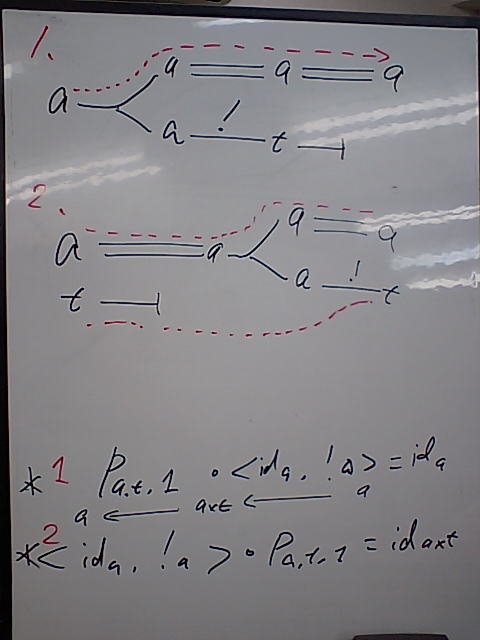 1.
a a a
a
a ! t
2.
a
a a a
a ! t
t
*1 P a,t,1 ∘ <id a, !a> = id a
a ← a×t ← a
*2 < id a, !a > ∘ P a,t,1 = id a×t